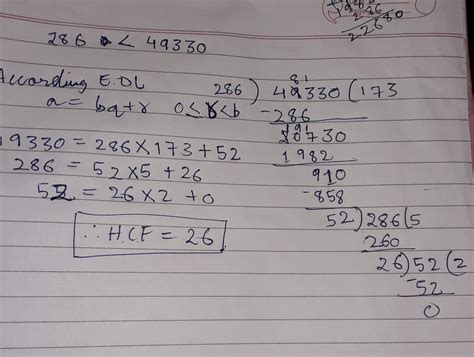 286
22680
286 < 49330
According E.DL
a = bq+r 0≤r<b
19330 = 286×173+52
286 = 52×5+26
52 = 26×2 +0
∴ H.C.F = 26
286) 49330 (173
-286
20730
1982
910
-858
52) 286 (5
260
26) 52 (2
-52
0